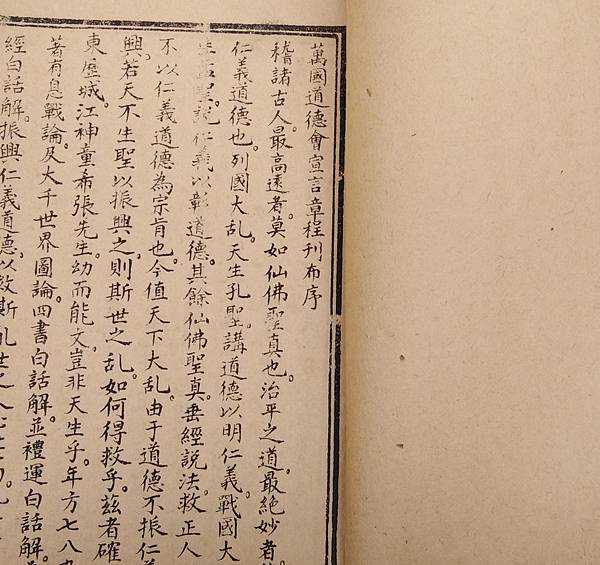 萬國道德會宣言章程刊布序
稽諸古人。最高遠者。莫如仙佛聖真也。治平之道。最絕妙者
仁義道德也。列國大乱。天生孔聖。講道德以明仁義。戰國大
聖。說仁義以彰道德。其餘仙佛聖真。垂經說法。救正人
不以仁義道德為宗肯也。今值天下大乱。由于道德不振。仁義
興。若天不生聖以振興之。則斯世之乱。如何得救乎。茲者確
東歷城。江神童希張先生。幼而能文。豈非天生乎。年方七八
著有息戰論。及大千世界圖論。四書白話解。並禮運白話解。
經白話解。振興仁義道德。以救斯乱世之人心